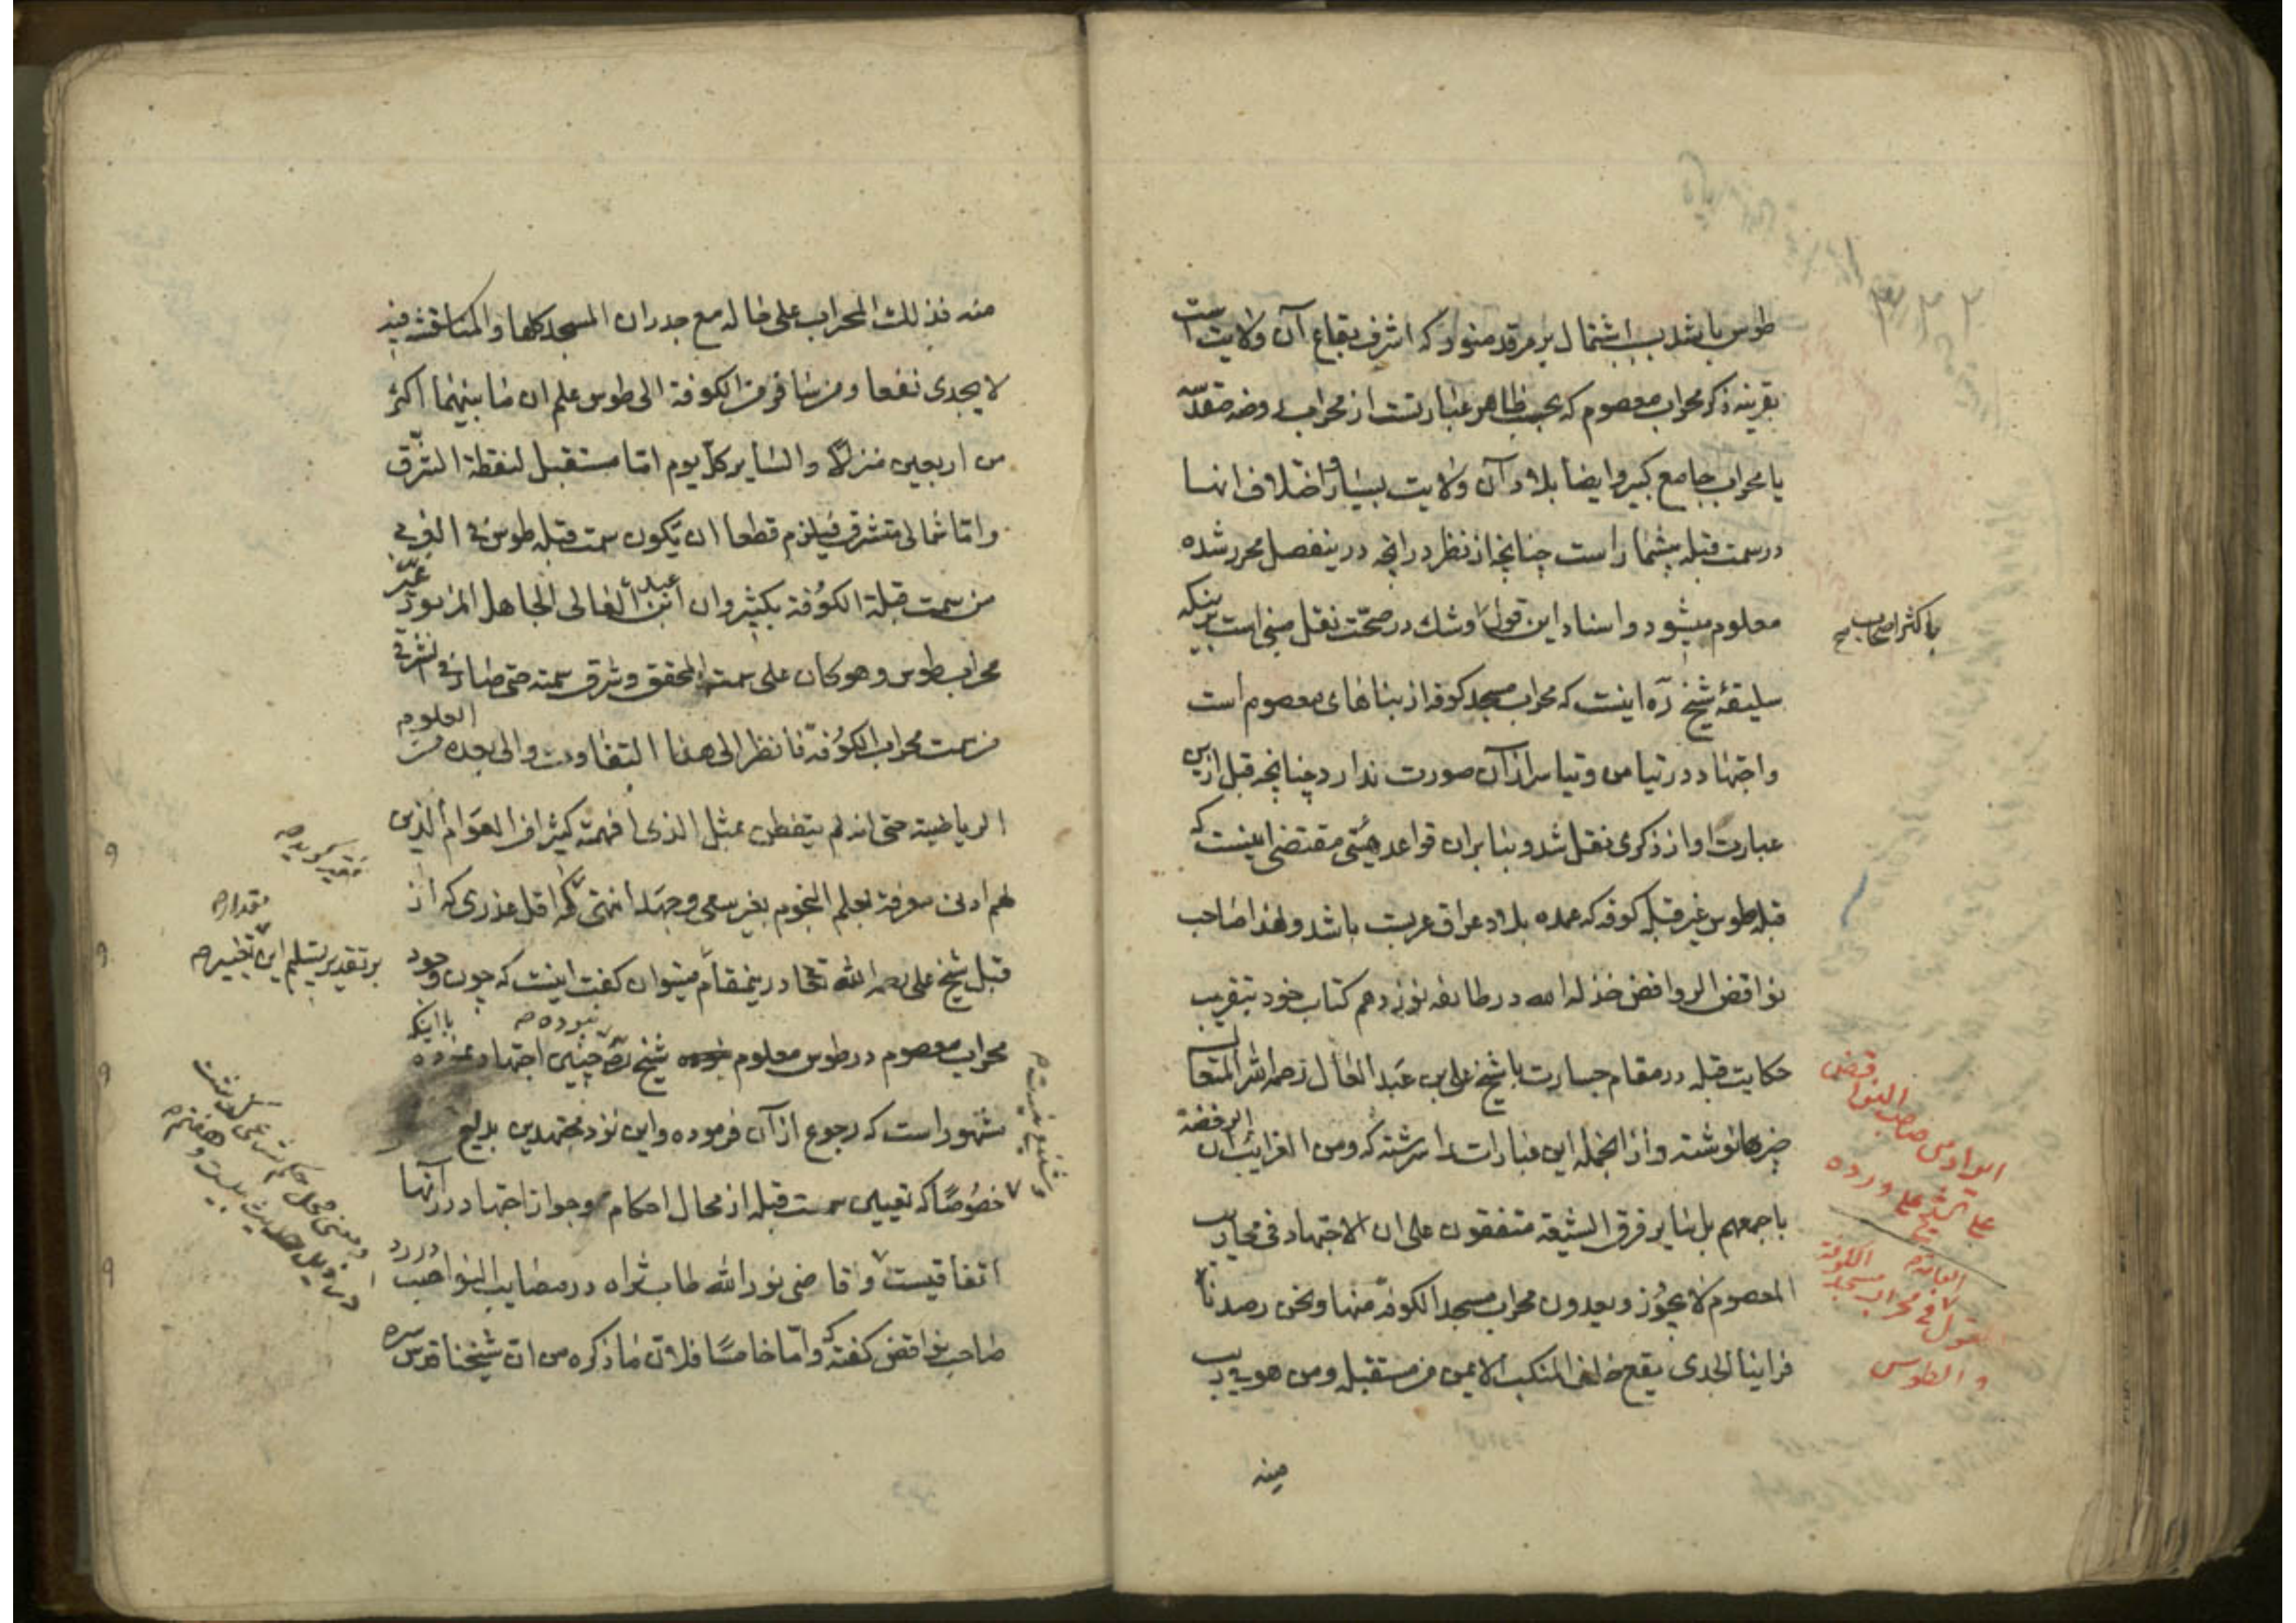 طوس باشد بسبب اشتمال بر مرقد منور كه اشرف بقاع آن ولايت است
بقرينه ذكر محراب معصوم كه بحسب ظاهر عبارتست از محراب روضه مقدسه
يا محراب جامع كبير وايضا بلاد آن ولايت بسيار و اختلاف انها
در سمت قبله بيشمار است چنانچه از نظر در آنچه در ينفصل محرر شده
معلوم ميشود و اسناد اين قول وشك در صحت نقل مبنى است برينكه
باكثر اصحاب صح
سليقه شيخ ره اينست كه محراب مسجد كوفه از بناهاى معصوم است
واجتهاد در تيامن وتياسر از آن صورت ندارد چنانچه قبل ازين
عبارت او از ذكرى نقل شد و بنابران قواعد هيئتى مقتضى اينست كه
قبله طوس غير قبله كوفه كه عمده بلاد عراق عربست باشد ولهذا صاحب
نواقض الروافض خذله الله در طايفه نوزدهم كتاب خود بتقريب
حكايت قبله در مقام جسارت با شيخ على بن عبد العال رحمه الله المتعال
چيزها نوشته و از انجمله اين عبارات را سرشته كه ومن الغرائب ان الرفضة
باجمعهم بل ساير فرق الشيعة متفقون على ان الاجتهاد فى محاريب
المعصوم لا يجوز ويعدون محراب مسجد الكوفة منها ونحن رصدنا
فراينا الجدى يقع خلف المنكب الايمن من مستقبله ومن هو قريب
منه
ايراد من صاحب النواقض
على الشيخ على ورده
القول فى محراب مسجد الكوفة
والطوس
منه فذلك المحراب على حاله مع جدران المسجد كلها والمناقشة فيه
لا يجدى نفعا ومن سافر من الكوفة الى طوس علم ان ما بينهما اكثر
من اربعين منزلا والساير كل يوم اما مستقبل لنقطة الشرق
واما شمالى متشرق فيلزم قطعا ان يكون سمت قبله طوس فى الغرب
من سمت قبلة الكوفة بكثير وان ابن عبد العالى الجاهل المزبور غير
محراب طوس وهو كان على سمت المحقق وشرق سمته حتى صار فى الشرق
من سمت محراب الكوفة فانظر الى هذا التفاوت والى بعده من العلوم
الرياضية حتى انه لم يتفطن بمثل الذى افهمته كثيرا من العوام الذين
لهم ادنى معرفة بعلم النجوم بغير سعى وجهد انتهى كه اقل عذرى كه از
قبل شيخ على رحمه الله تعالى در ينمقام ميتوان گفت اينست كه چون وجود
محراب معصوم در طوس معلوم نبوده شيخ ره چنين اجتهاد نموده با اينكه
مشهور است كه رجوع از آن فرموده واين نزد مجتهدين بديع
خصوصا كه تعيين سمت قبله از محال احكام وجواز اجتهاد در آنها
اتفاقيست و قاضى نور الله طاب ثراه در مصايب النواصب در رد
صاحب نواقض گفته كه واما خامسا فلان ما ذكره من ان شيخنا قدس سره
مقدار
بر تقدير تسليم اين تغيير